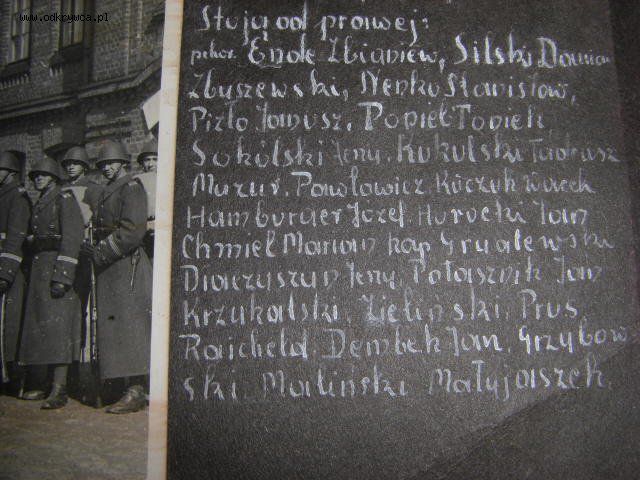 www.odkrywca.pl
Stoją od prawej:
pchor. Ende Zbigniew, Silski Damian
Zbyszewski, Nenko Stanisław,
Pizło Janusz, Popiel Popiek
Sokólski Jerzy, Kukulski Tadeusz
Mazur, Pawłowicz Kuczyk Wacek
Hamburger Józef, Hurvcki Jan
Chmiel Marian kap. Grualewski
Jerzy, Potasznik Jan
Krzykalski, Zieliński, Prus
Raicheld Dembek Jan, Grzybow
ski Maliński Małyjaszek